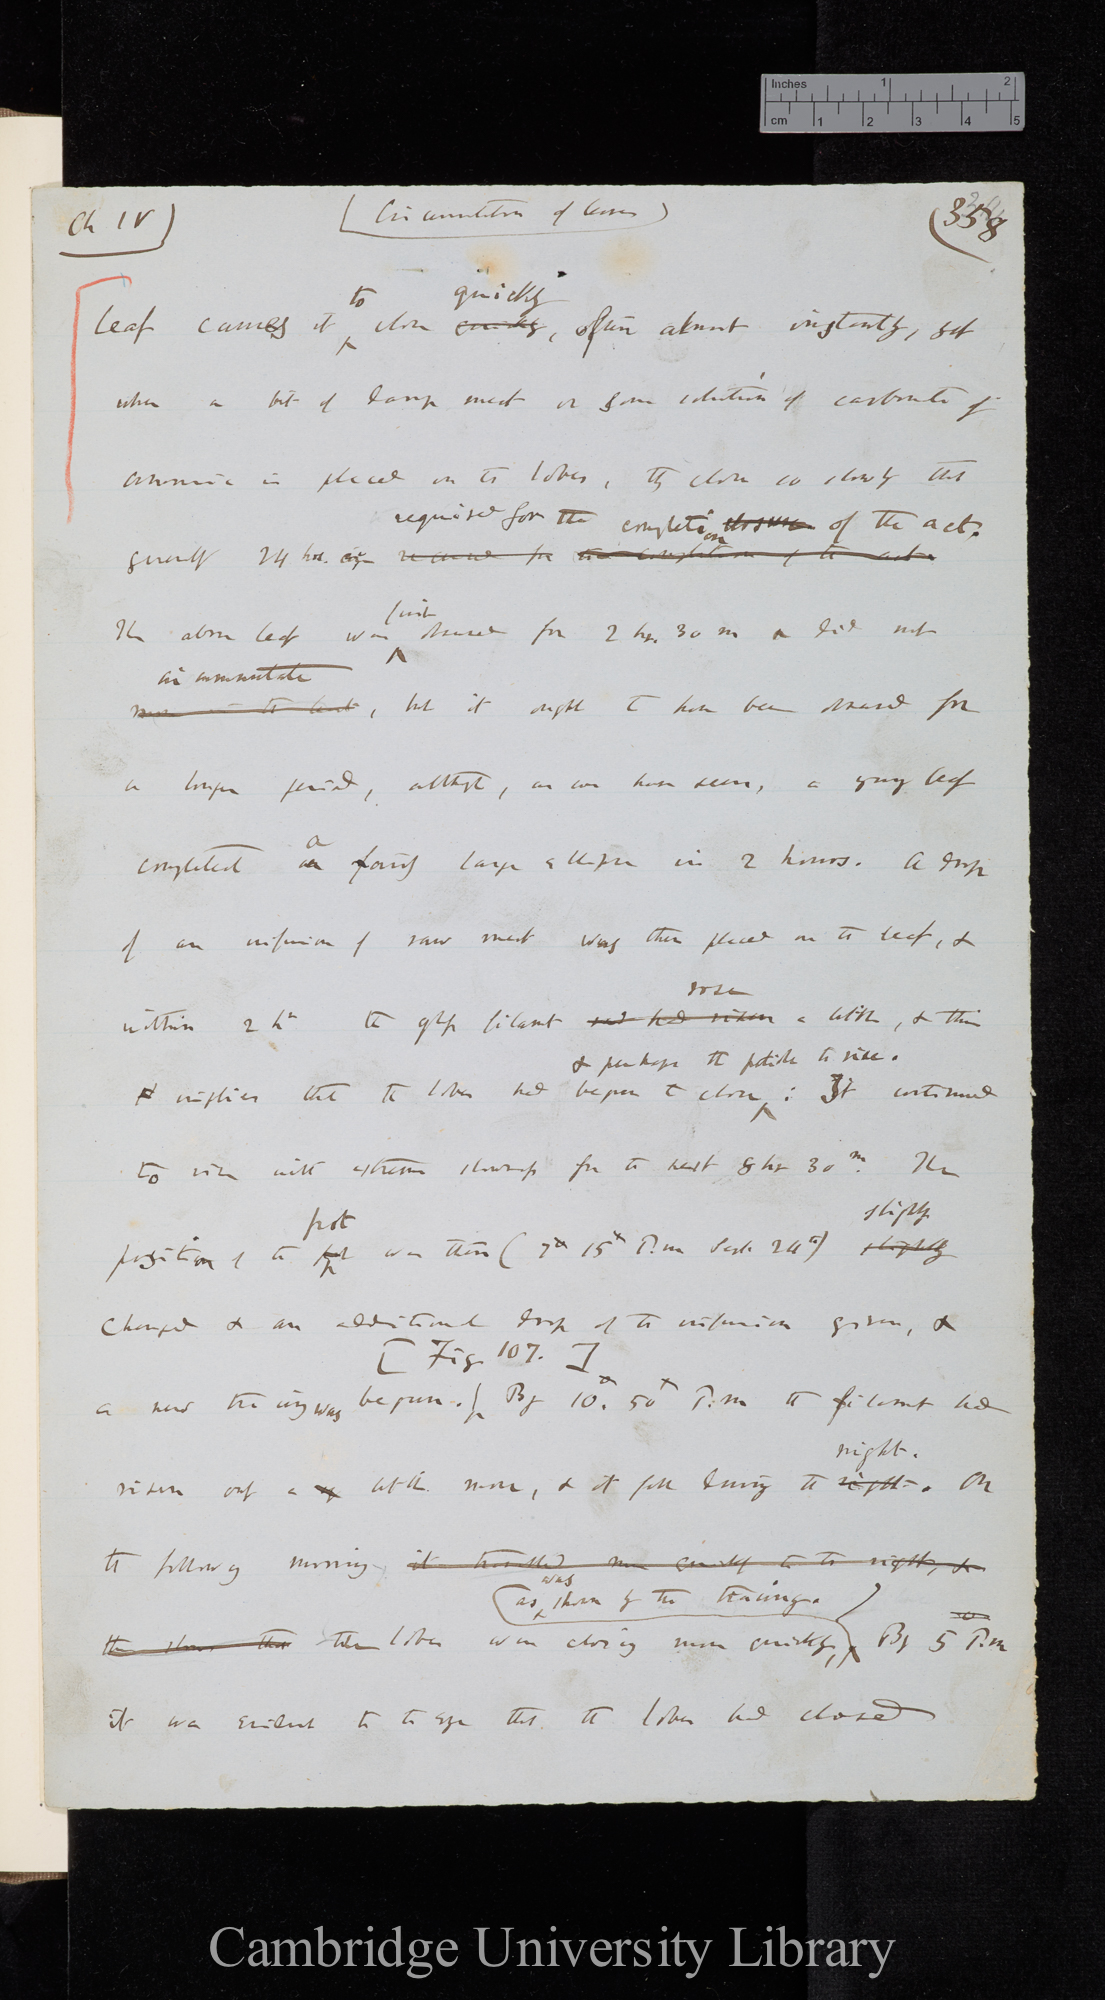 Inches 1 2
cm 1 2 3 4 5
Ch IV) (Circumnutation of leaves) (358
to quickly
leaf causes it close quickly, often almost instantly, yet
when a bit of damp meat or some solution of carbonate of
ammonia is placed on the lobes, they close so slowly that
required for the completion closure of the act.
generally 24 hrs. are required for the completion of the act.
The above leaf was first observed for 2 hrs. 30 m & did not
circumnutate
, but it ought to have been observed for
a longer period, although, as we have seen, a young leaf
a
completed an fairly large ellipse in 2 hours. A drop
of an infusion of raw meat was then placed on the leaf, &
rose
within 2 hrs the glass filament had risen a little, & this
& perhaps the petiole to rise.
implies that the lobes had begun to close; It continued
to rise with extreme slowness for the next 8 hrs 30m. The
pot slightly
position of the pot was then (7h 15m P.m Sept. 24th) slightly
changed & an additional drop of the infusion given, &
[Fig. 107.]
a new tracing was begun. By 10h. 50m P.m the filament had
night.
risen only a little more, & it fell during the night. On
the following morning it travelled more quickly to the right, &
(as was shown by the tracing.)
the shows that the lobes were closing more quickly, By 5 P.m
it was evident to the eye that the lobes had closed
Cambridge University Library